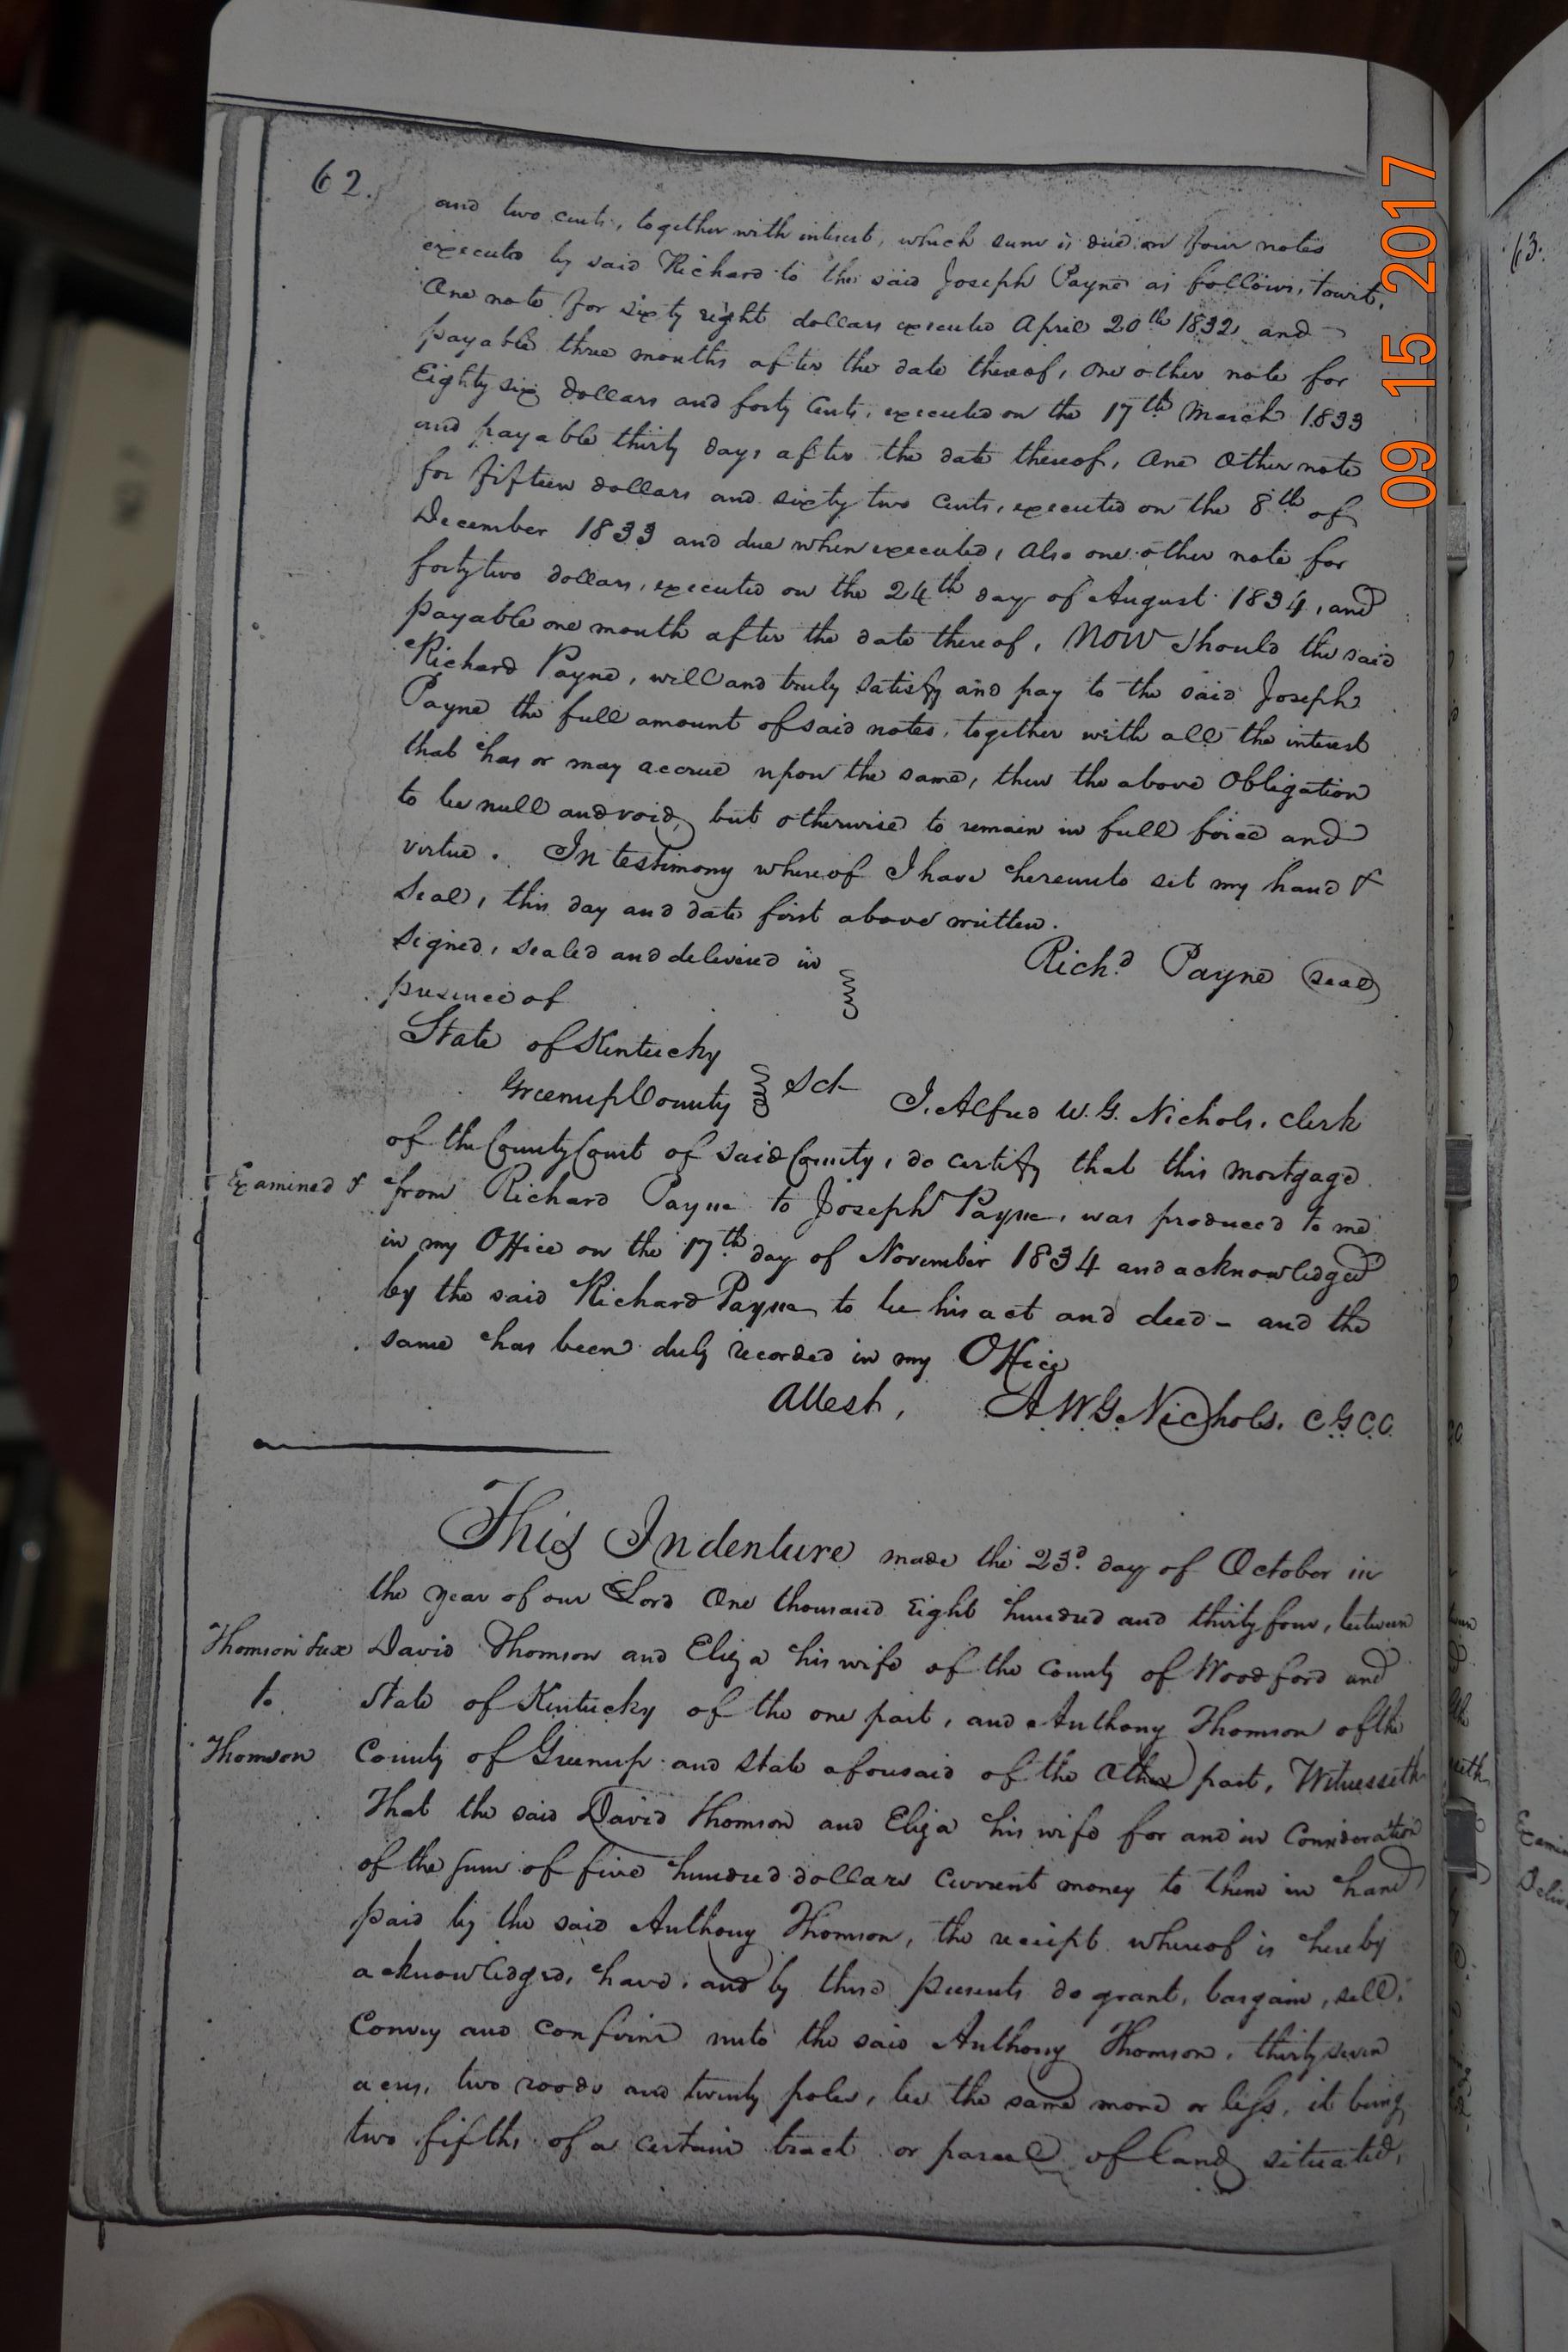 62.
and two cents, together with interest, which sum is due on four notes
executed by said Richard to the said Joseph Payne as follows, towit,
One note for sixty eight dollars executed April 20th 1832 and
payable three months after the date thereof, one other note for
Eighty six dollars and forty Cents, executed on the 17th March 1833
and payable thirty days after the date thereof, One Other note
for fifteen dollars and sixty two Cents, executed on the 8th of
December 1833 and due when executed, Also one other note for
forty two dollars, executed on the 24th day of August 1834, and
payable one month after the date thereof, NOW should the said
Richard Payne, well and truly satisfy and pay to the said Joseph
Payne the full amount of said notes, together with all the interest
that has or may accrue upon the same, then the above Obligation
to be null and void, but otherwise to remain in full force and
virtue. In testimony whereof I have hereunto set my hand &
Seal, this day and date first above written.
Signed, sealed and delivered in
Richd Payne (seal)
presence of
State of Kentucky
Greenup County Sct I, Alfred W. G. Nichols, Clerk
of the County Court of said County, do certify that this mortgage
Examined & from Richard Payne to Joseph Payne, was produced to me
in my Office on the 17th day of November 1834 and acknowledged
by the said Richard Payne to be his act and deed - and the
same has been duly recorded in my Office
Attest, A. W. G. Nichols. C.G.C.C.
This Indenture made the 23d day of October in
the year of our Lord One thousand Eight hundred and thirty four, between
Thomson &ux David Thomson and Eliza his wife of the County of Woodford and
to State of Kentucky of the one part, and Anthony Thomson of the
Thomson County of Greenup and State aforesaid of the Other part, Witnesseth
That the said David Thomson and Eliza his wife for and in Consideration
of the sum of five hundred dollars Current money to them in hand
paid by the said Anthony Thomson, the receipt whereof is hereby
acknowledged, have, and by these presents do grant, bargain, sell,
Convey and confirm unto the said Anthony Thomson, thirty seven
acres, two roods and twenty poles, be the same more or less, it being
two fifths of a certain tract or parcel of land situated,
09 15 2017
63.